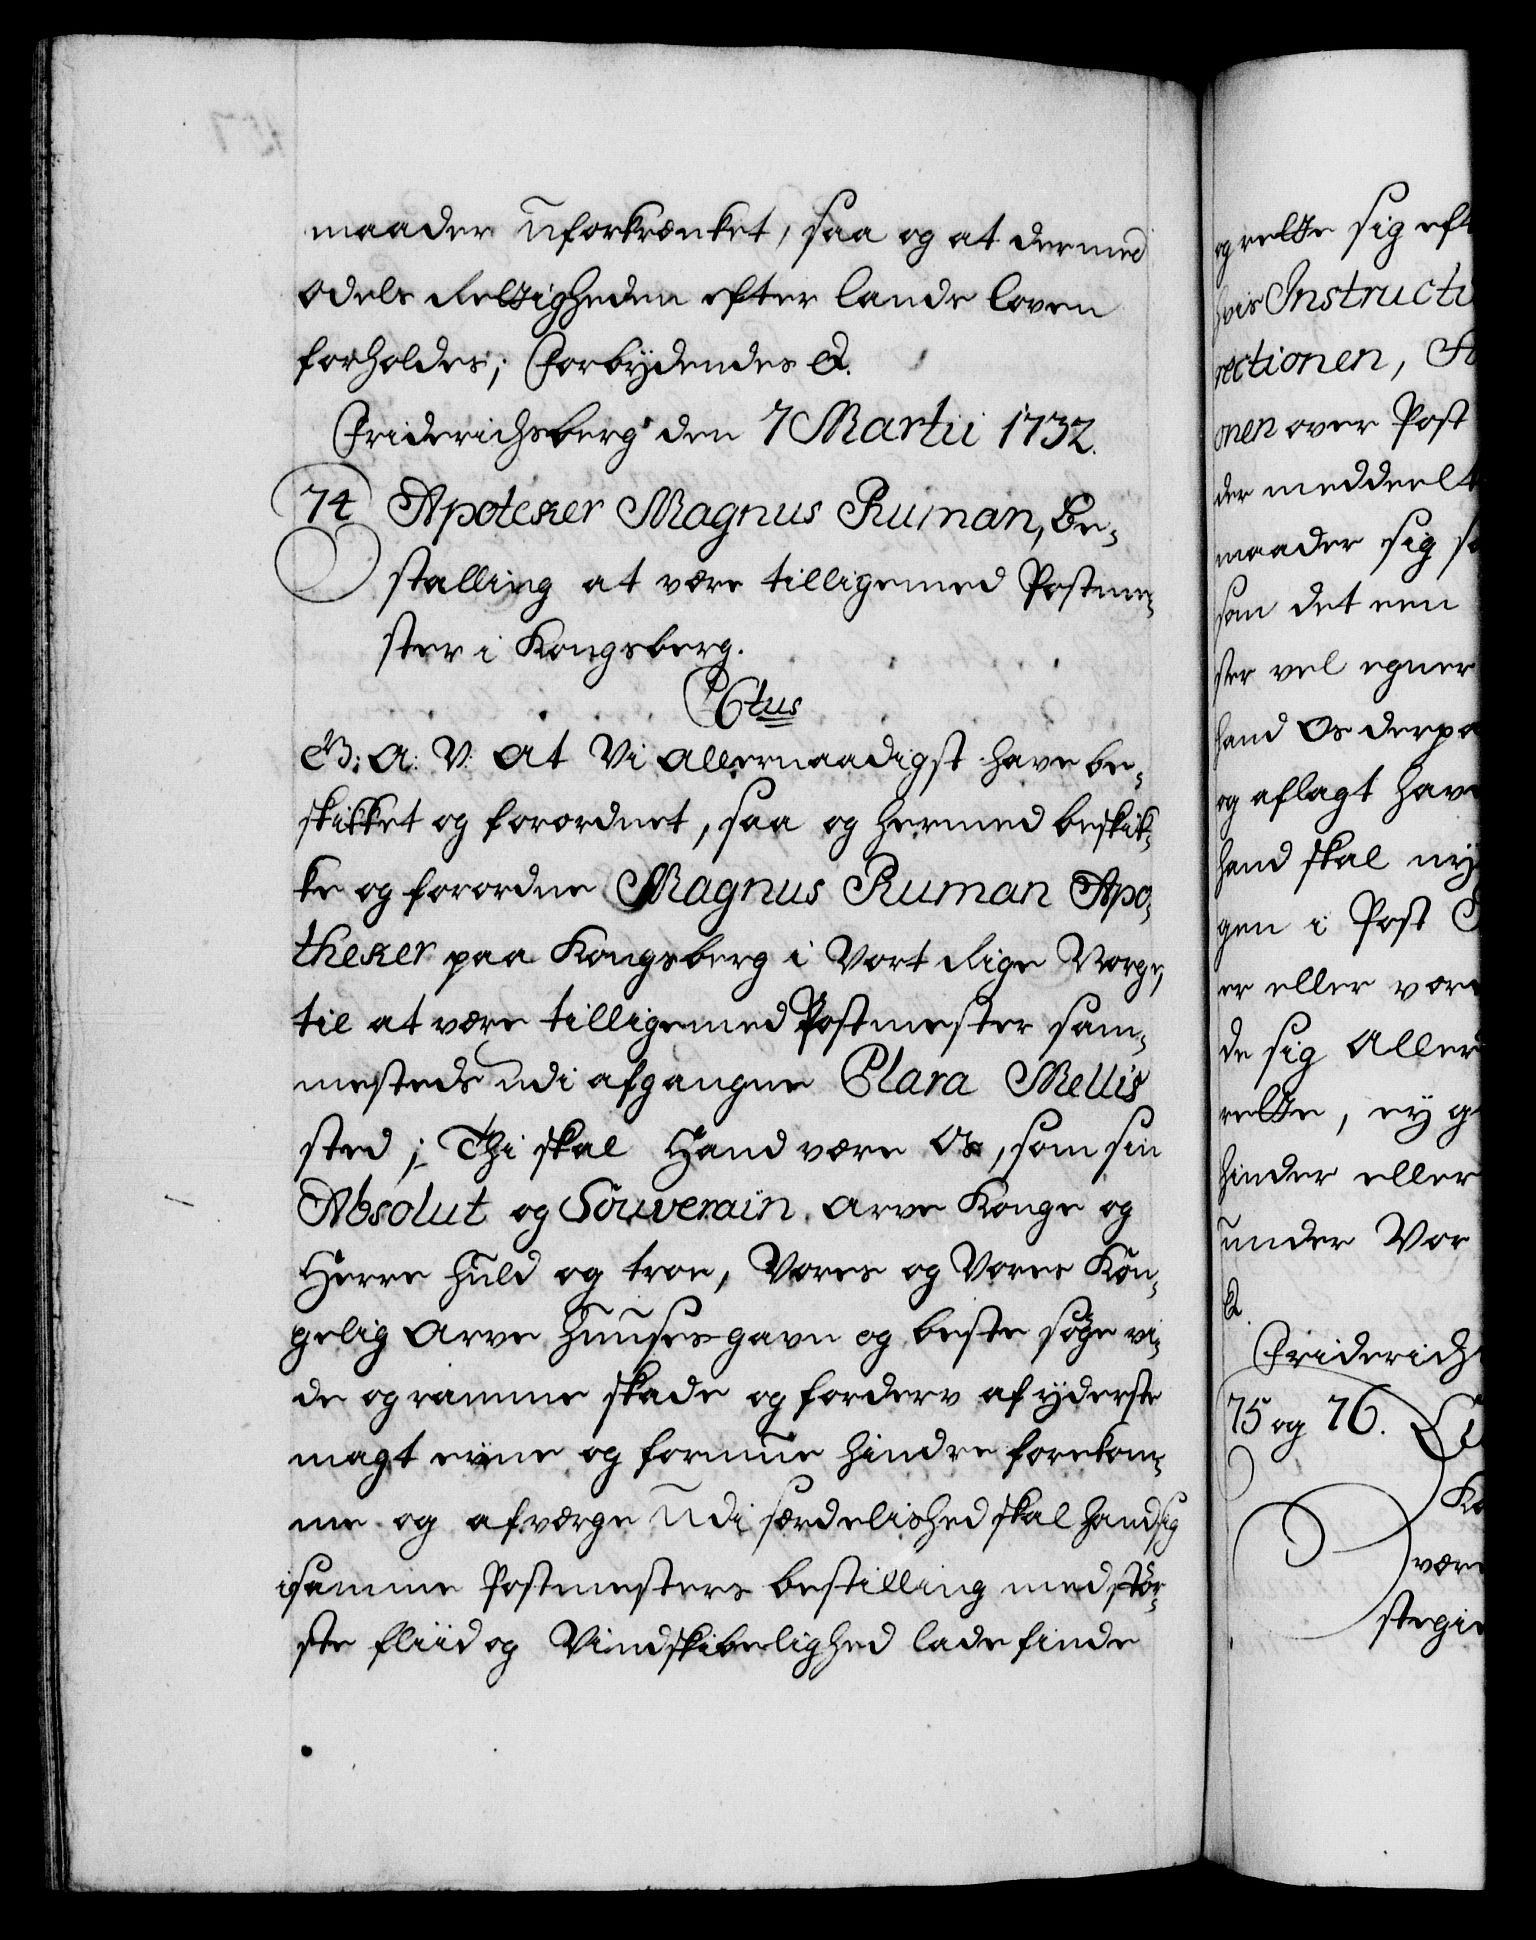 maader uforkrænket, saa og at dermed
Odels Rettigheden efter Lands Loven
forholdes; Forbydendes &.
Friderichsberg den 7 Martii 1732.
74 Apoteker Magnus Ruman, Be-
stalling at være tilligemed Postme-
ster i Kongsberg.
C6tus
G: A: V: At Vi Allernaadigst have be-
skikket og forordnet, saa og hermed beskik-
ke og forordne Magnus Ruman Apo-
theker paa Kongsberg i Vort Rige Norge,
til at være tilligemed Postmester sam-
mesteds udi afgangne Clara Mellis
sted; Thi skal Hand være Os, som sin
Absolut og Souverain Arve Konge og
Herre huld og troe, Vores og Vores Kon-
gelig Arve Huuses gavn og beste søge vi-
de og ramme skade og forderv af yderste
magt evne og formue hindre forekom-
me og afværge Udi særdelished skal hand sig
i samme Postmesters bestilling med stør-
ste fliid og Vindskibelighed lade finde
og rette sig eft
hvis Instructi
rectionen,
onen over Post
der meddeelt
maader sig
som det een
ster vel egner
hand Os derpa
og aflagt hav
hand skal ny
gen i Post
er eller vor
de sig Aller
rette, ey g
hinder eller
under Vor
&.
Friderichs
75 og 76.
Ko
være
stegi